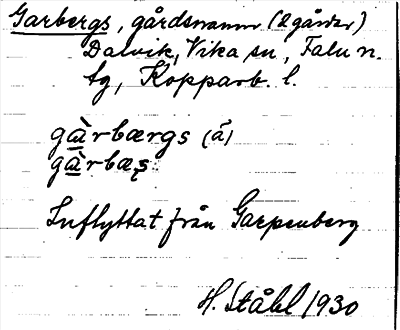 Garbergs, gårdsnamn (2 gårdar)
Dalvik, Vika sn, Falu n.
tg, Kopparb. l.
gàrbærgs (ä)
gàrbæș
Inflyttat från Garpenberg
H. Ståhl 1930